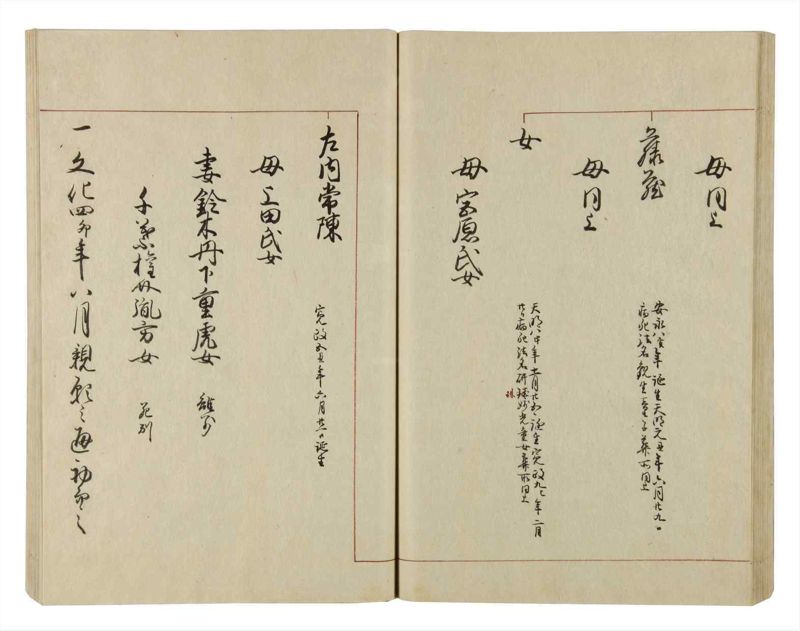 母同上
藤蔵
安永八亥年誕生天明元丑年六月廿九日
病死法名観生童子葬所同上
母同上
女
天明八申年十一月廿四日誕生寛政九巳年二月
廿日病死法名研珠妙光童女葬所同上
珠
母宮原氏女
左内常陳
寛政五丑年六月廿六日誕生
母上田氏女
妻鈴木丹下重虎女
離別
千葉権丹胤方女
死別
一文化四卯年八月親願之通初而之